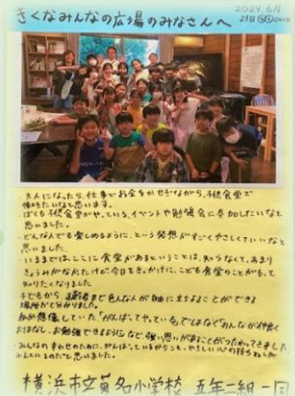 きくなみんなの広場のみなさんへ
2024.6.1
大人になったら、仕事でお金をかせぎながら、子供食堂で
働きたいなと思います。
ぼくも子供食堂がやっている、イベントや勉強会に参加したいなと
思いました。
どんな人でも楽しめるように、という発想がすごくやさしくていいなと
思いました。
いままでは、ここに食堂があるということは、知らなくて、あまり
きょうみがなかったけど、今日をきっかけに、こども食堂のことがもっと
知りたくなりました。
子どもから高齢者まで色んな人が自由に立ちよることができる
場所だと分かりました。
私が想像していた「がんばってやっている」ではなくみんなが仲良く
強い思いがあることがつたわってきました。
みんなの幸せのために、がんばっているからこそ、やさしい心の持ちぬしが
ふえているのだと思いました。
横浜市立菊名小学校 五年二組一同